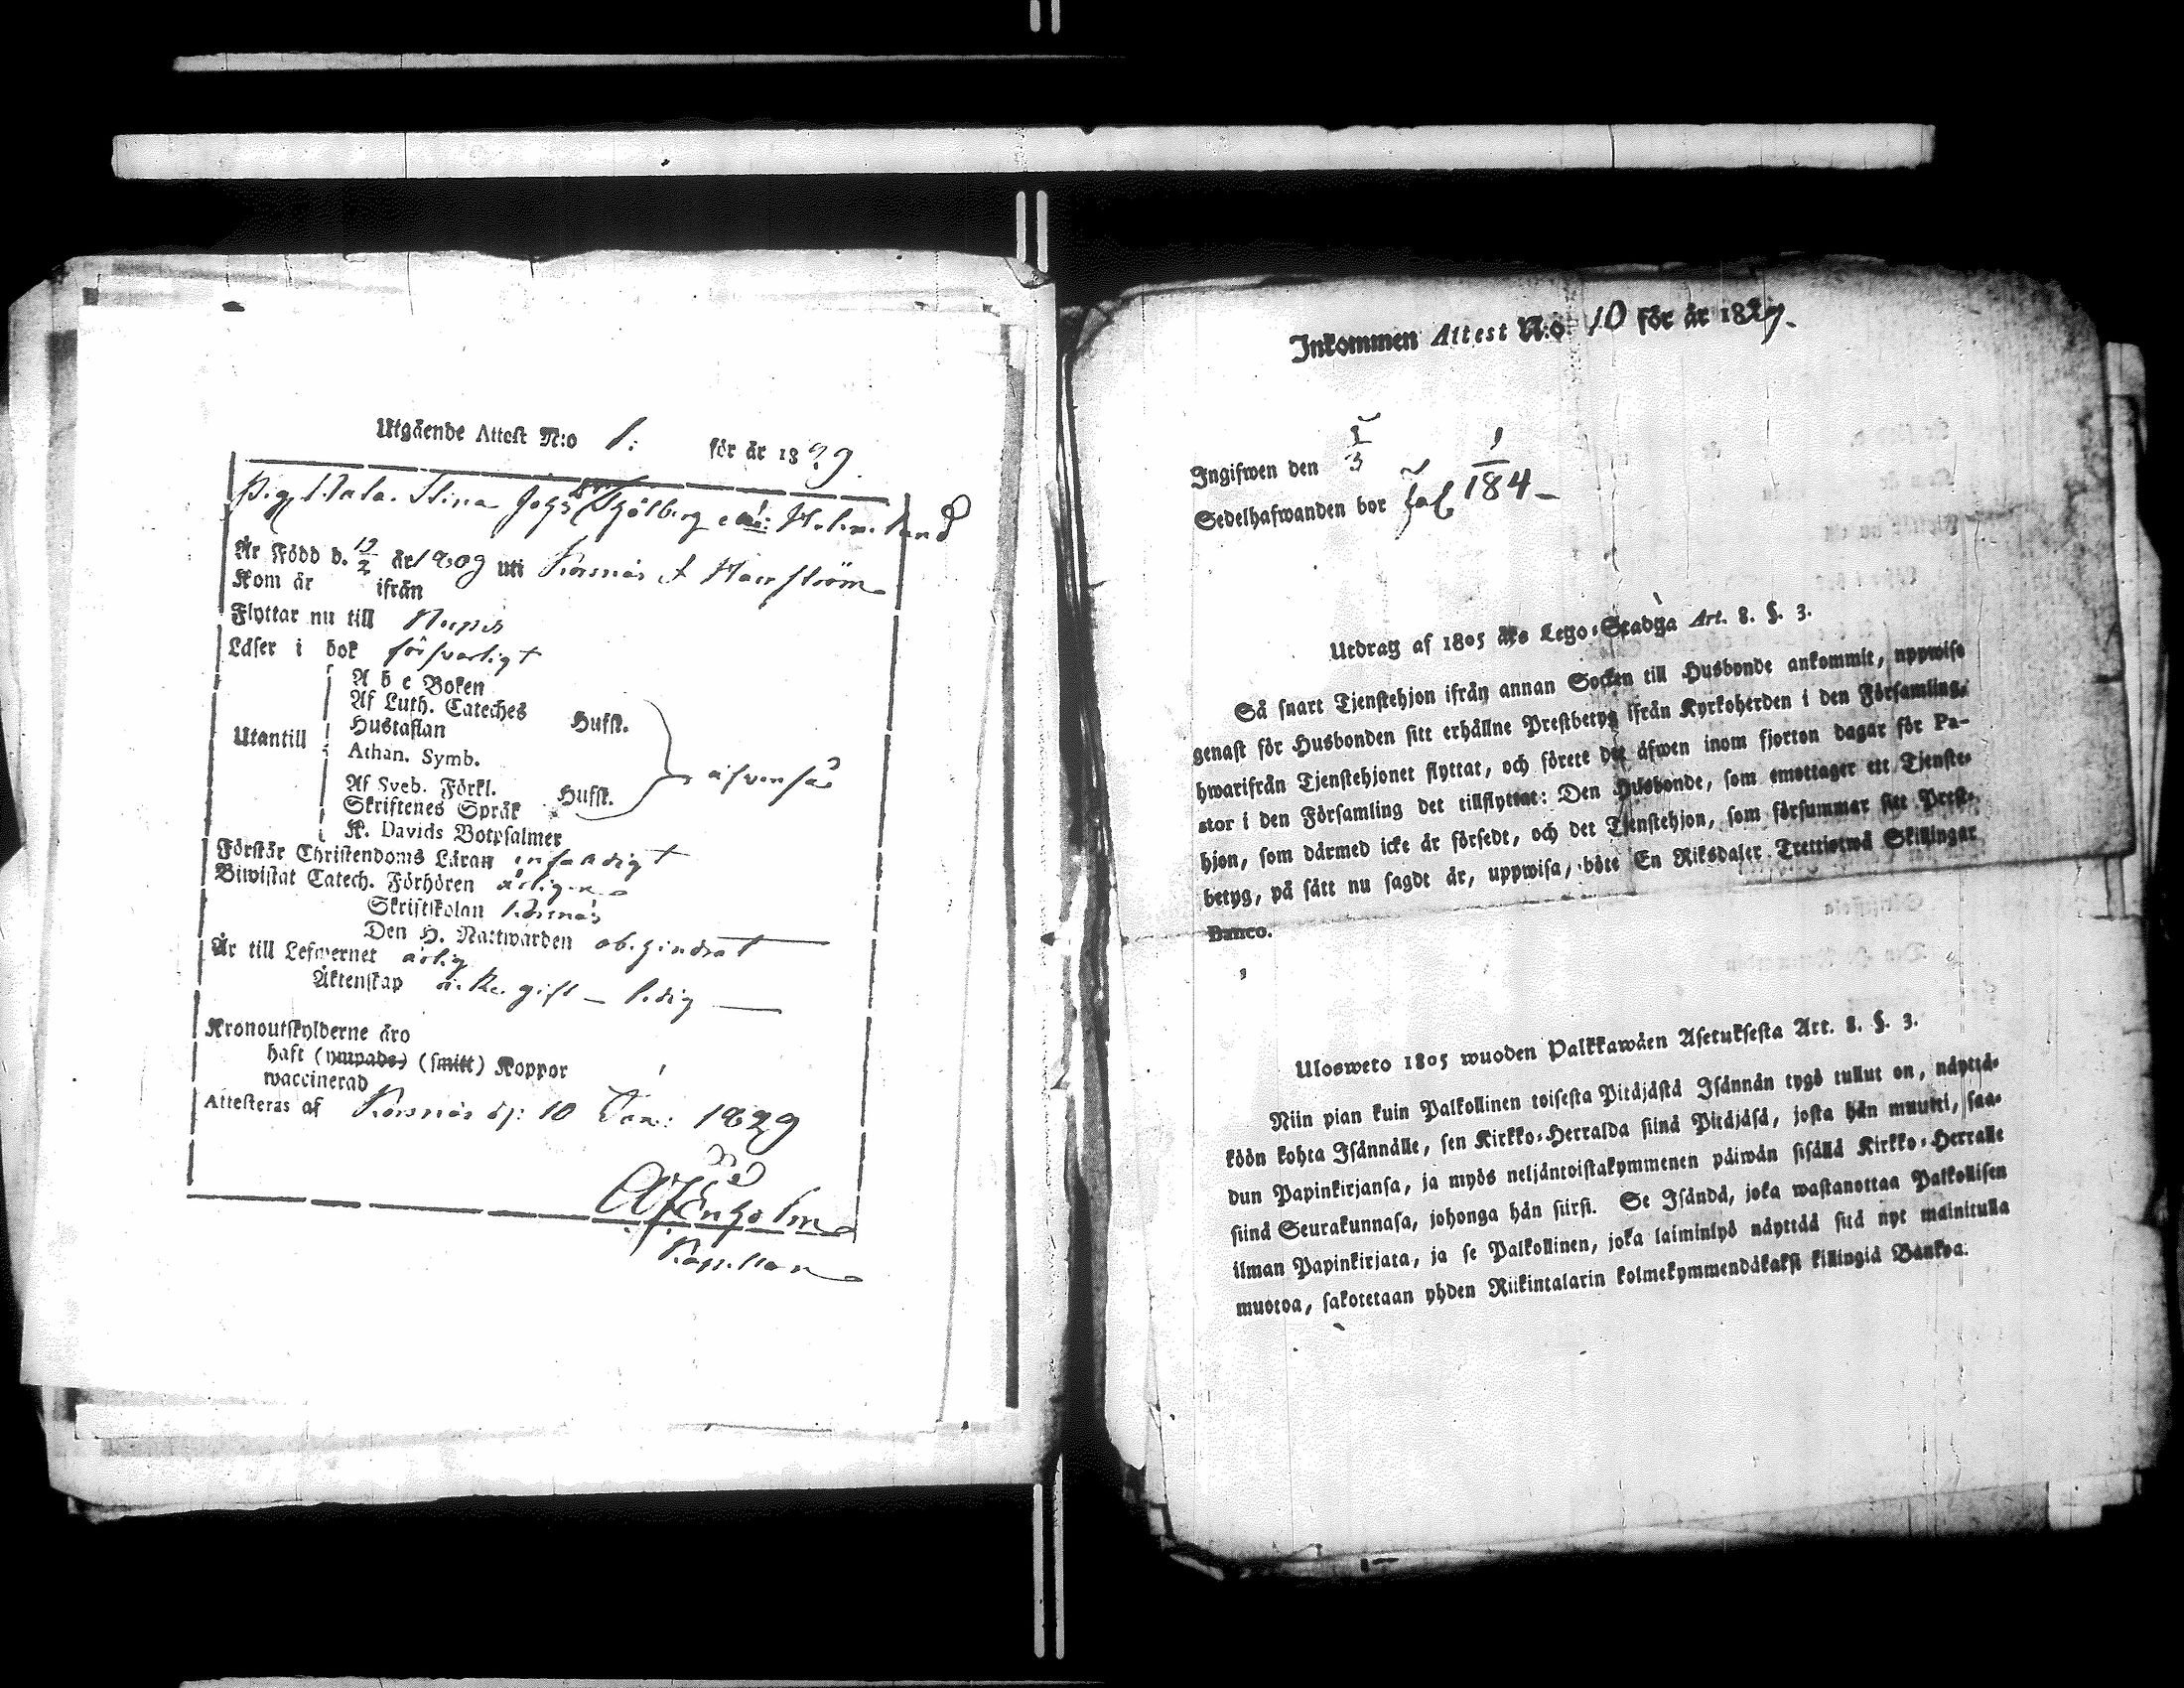 Utgående Attest N:o 1: för år 1829.
Pig. Maja Stina
Är Född d. 12/2 år 1809 uti Korsnäs
Kom är ifrån
Flyttar nu till
Läser i bok försvarligt
A b c Boken
Af Luth. Cateches
Hustaflan Huffl.
Utantill
Athan. Symb.
äfvenså
Af Sveb. Förkl.
Skriftenes Språk Huffl.
K. Davids Botpsalmer
Förstår Christendoms Läran enfaldigt
Biwistat Catech. Förhören årligen
Skriftskolan Korsnäs
Den H. Nattwarden obehindrat
Är till Lefwernet ärlig
Äktenskap äcke gift – ledig –
Kronoutskylderne äro
haft (ympade) (smitt) Koppor
waccinerad
Attesteras af Korsnäs d: 10 Jan: 1829
Kapellan
Inkommen Attest N:o 10 för år 1829.
Ingifwen den 1/3
Sedelhafwanden bor 1/184
Utdrag af 1805 års Lego-Stadga Art. 8. §. 3.
Så snart Tjenstehjon ifrån annan Socken till Husbonde ankommit, uppwise
genast för Husbonden sitt erhållne Prestbetyg ifrån Kyrkoherden i den Församling,
hwarifrån Tjenstehjonet flyttat, och förete det äfwen inom fjorton dagar för Pa-
stor i den Församling det tillflyttat: Den Husbonde, som emottager ett Tjenste-
hjon, som därmed icke är försedt, och det Tjenstehjon, som försummar sitt Prest-
betyg, på sätt nu sagdt är, uppwisa, böte En Riksdaler Trettiotwå Skillingar
Banco.
Ulosweto 1805 wuoden Palkkawäen Asetuksesta Art. 8. §. 3.
Niin pian kuin Palkollinen toisesta Pitäjästä Isännän tygö tullut on, näyttä-
köön kohta Isännälle, sen Kirkko-Herralda siinä Pitäjäsä, josta hän muutti, saa-
dun Papinkirjansa, ja myös neljäntoistakymmenen päiwän sisällä Kirkko-Herralle
siinä Seurakunnasa, johonga hän siirsi. Se Isändä, joka wastanottaa Palkollisen
ilman Papinkirjata, ja se Palkollinen, joka laiminlyö näyttää sitä nyt mainitulla
muotoa, sakotetaan yhden Riikintalarin kolmekymmendäkaksi killingiä Bankoa.